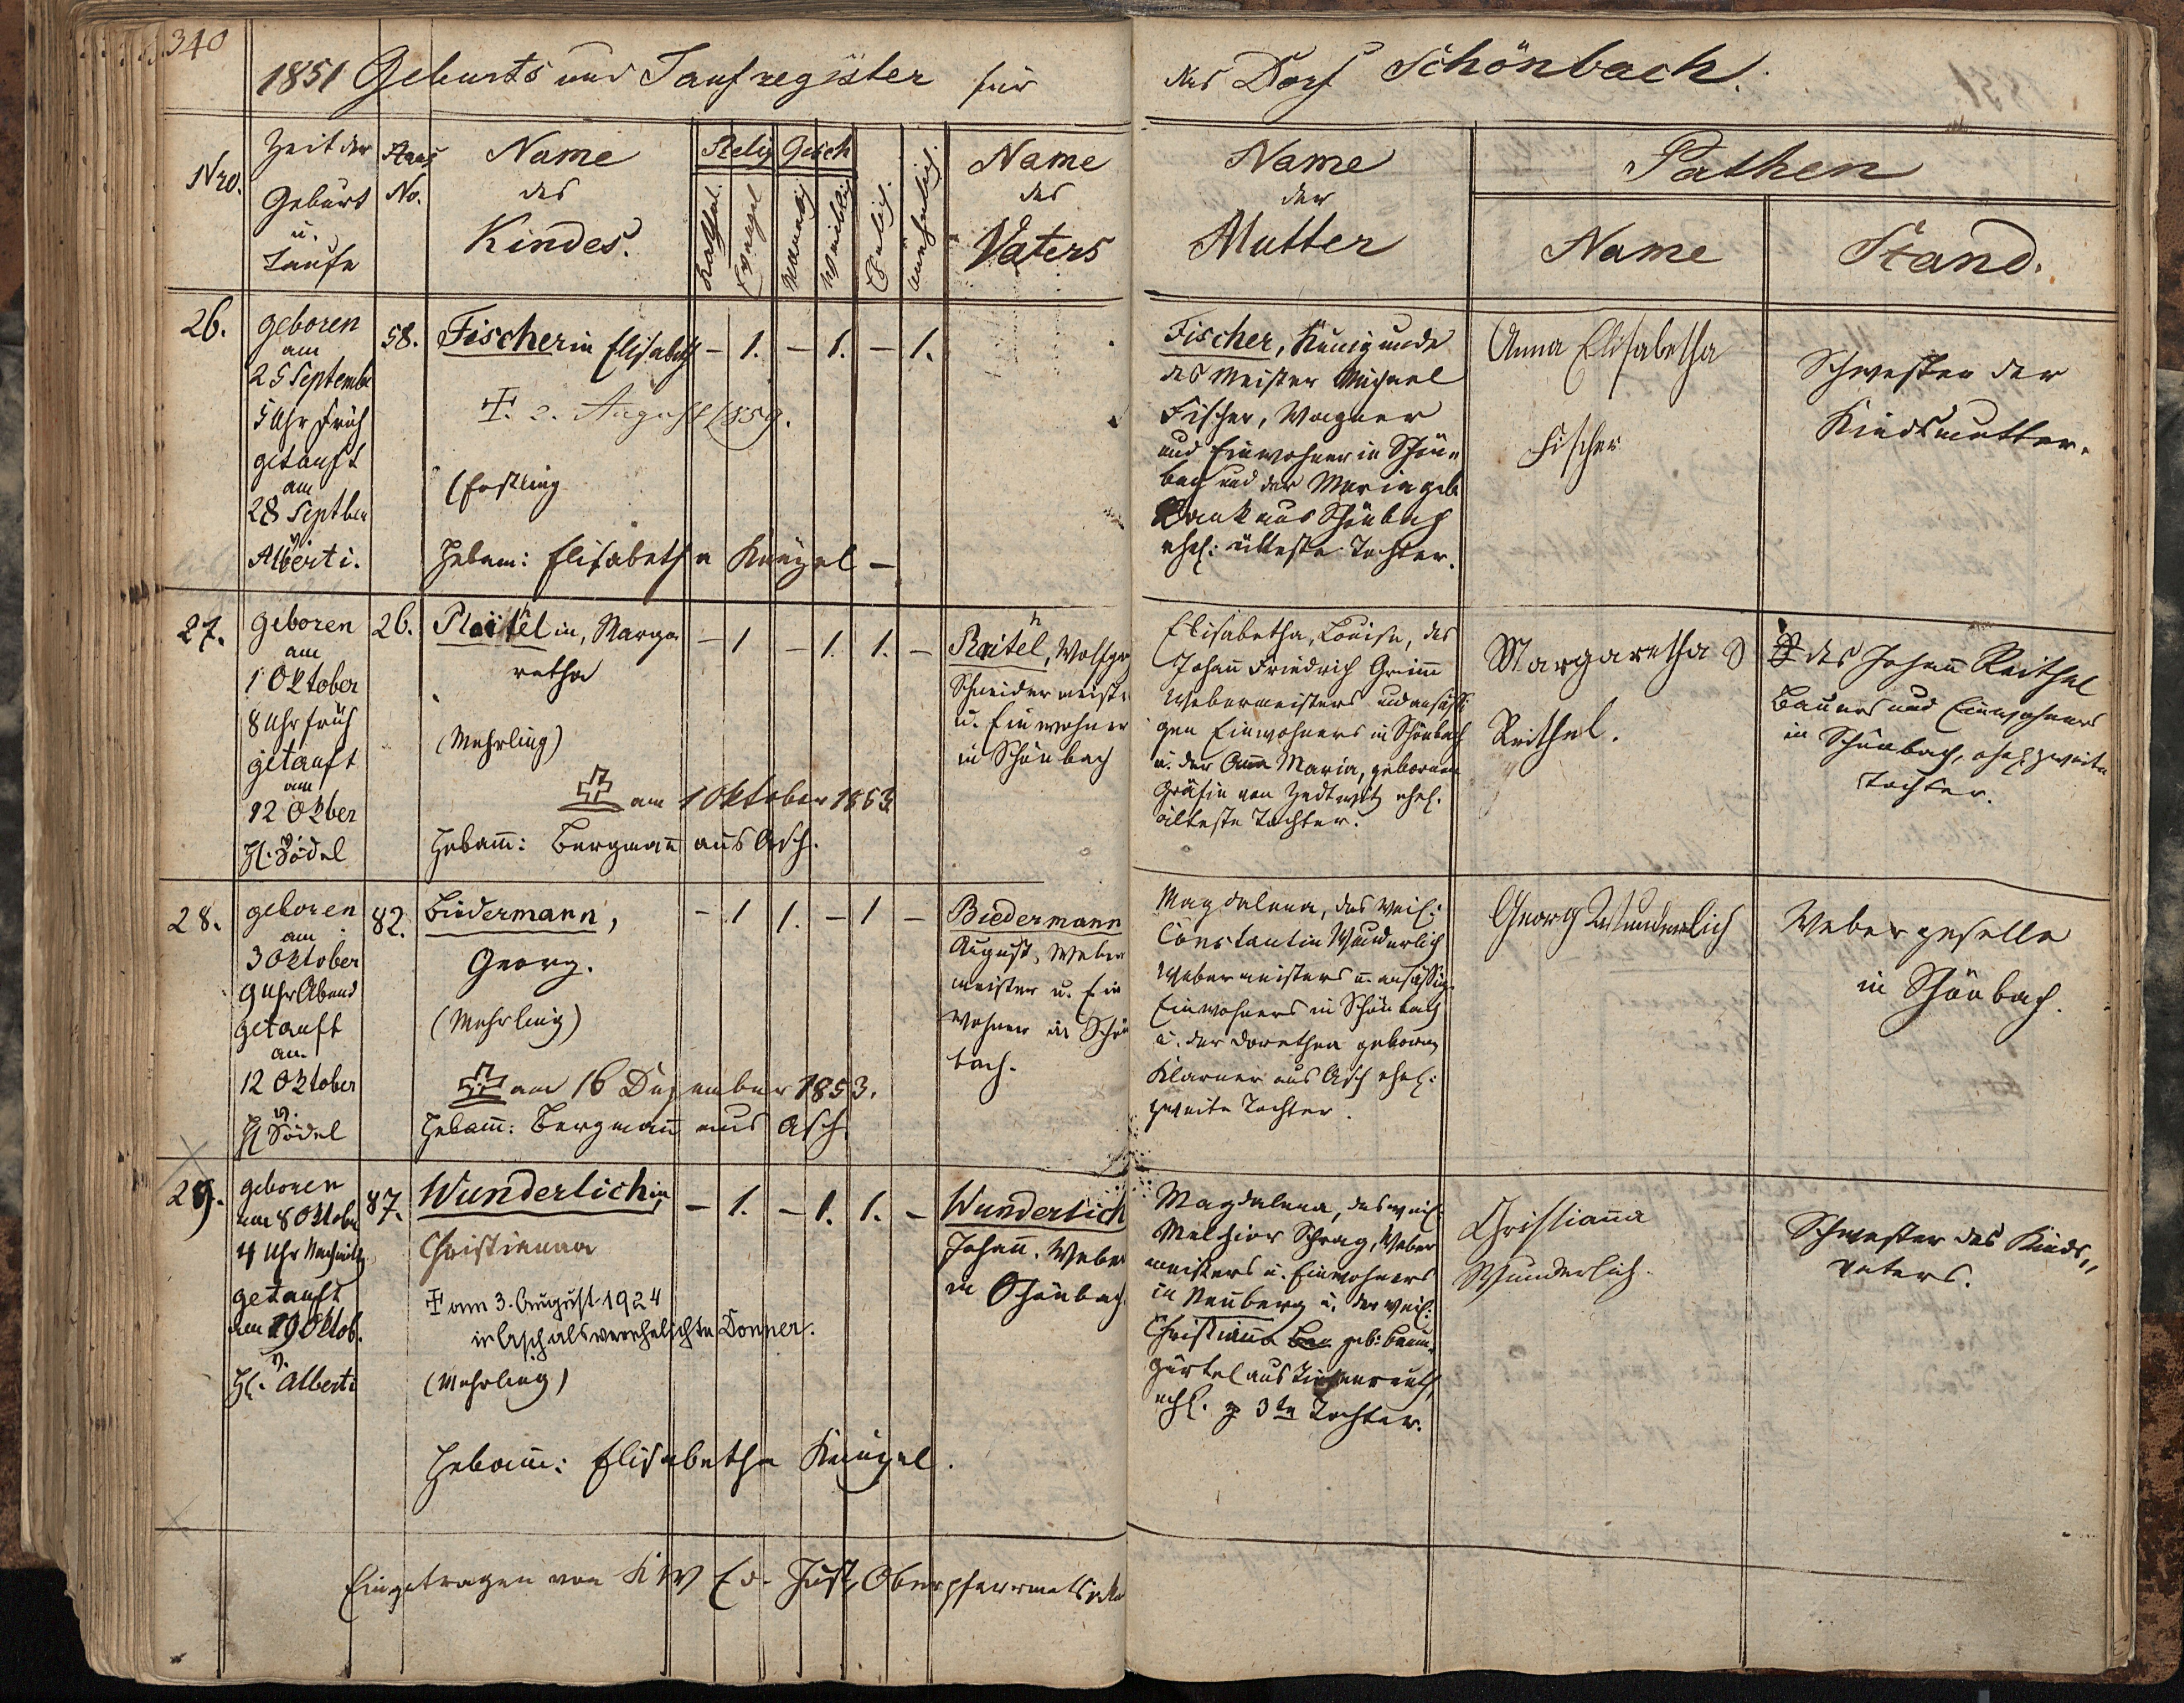 340
1851 Geburts und Taufregister für das Dorf Schönbach.
Nro.
Zeit der
Geburt
u.
Taufe
Haus
No.
Name
des
Kindes.
Relig
Gesch
Kathol.
Evangel
Männlich
Weiblich
Ehelich.
Unehelich.
Name
des
Vaters
Name
der
Mutter
Pathen
Name
Stand.
26.
geboren
am
25 Septembe
5 Uhr Früh
getauft
am
28 Septber
v.
Alberti.
58.
Fischerin Elisabeth
– 1. – 1. – 1.
†. 2. August 1859.
(Erstling
Hebam: Elisabetha Künzel –
Fischer, Kunigunde
des Meister Michael
Fischer, Wagner
und Einwohner in Schön-
bach und der Maria geb.
aus Schönbach
ehel: älteste Tochter.
Anna Elisabetha
Fischer
Schwester der
Kindsmutter.
27.
geboren
am
1 Oktober
8 Uhr früh
getauft
am
12 Okber
v.
H. Södel
26.
Reithelin, Marga-
retha
– 1 – 1. 1. –
(Mehrling)
am 1 Oktober 1853
Hebam̄: Bergman̄ aus Asch.
Reithel, Wolfga
Schneidermeiste
u. Einwohner
in Schönbach
Elisabetha, Louise, des
Johan̄ Friedrich Grim̄
Webermeisters und ansäßi
gen Einwohners in Schönbach
u. der Anna Maria, gebornen
Gräfin von Zedtwitz ehel.
älteste Tochter.
Margaretha
Reithel.
des Johan̄ Reithel
Bauers und Einwohners
in Schönbach, ehel. zweite
Tochter.
28.
geboren
am
3 Oktober
9 Uhr Abend
getauft
am
12 Oktober
v.
H. Södel
82.
Biedermann,
Georg.
– 1 1. – 1 –
(Mehrling)
am 16 Dezember 1853.
Hebam̄: Bergman̄ aus Asch.
Biedermann
August, Weber
meister u. Ein
wohner in Schön
bach.
Magdalena, des weil:
Constantin Wunderlich
Webermeisters u. ansäßig.
Einwohners in Schönbach
u. der Dorethea geborne
Klarner aus Asch ehel:
zweite Tochter.
Georg Wunderlich
Webergeselle
in Schönbach.
29.
geboren
am 8 Oktobe
4 Uhr Nachmittg
getauft
am 19 Oktob.
v.
H. Alberti
87.
Wunderlichin,
Christianna
– 1. – 1. 1. –
† am 3. August 1924
in Asch als verehelichte Donner.
(Mehrling)
Hebam̄: Elisabetha Künzel.
Wunderlich
Johan̄. Weber
in Schönbach.
Magdalena, des weil.
Melchior Schrag, Weber
meisters u. Einwohners
in Neuberg u. der weil:
Christian̄a geb: Baum-
gärtel aus
ehl. 3te Tochter.
Christian̄a
Wunderlich.
Schwester des Kinds-
vaters.
Eingetragen von